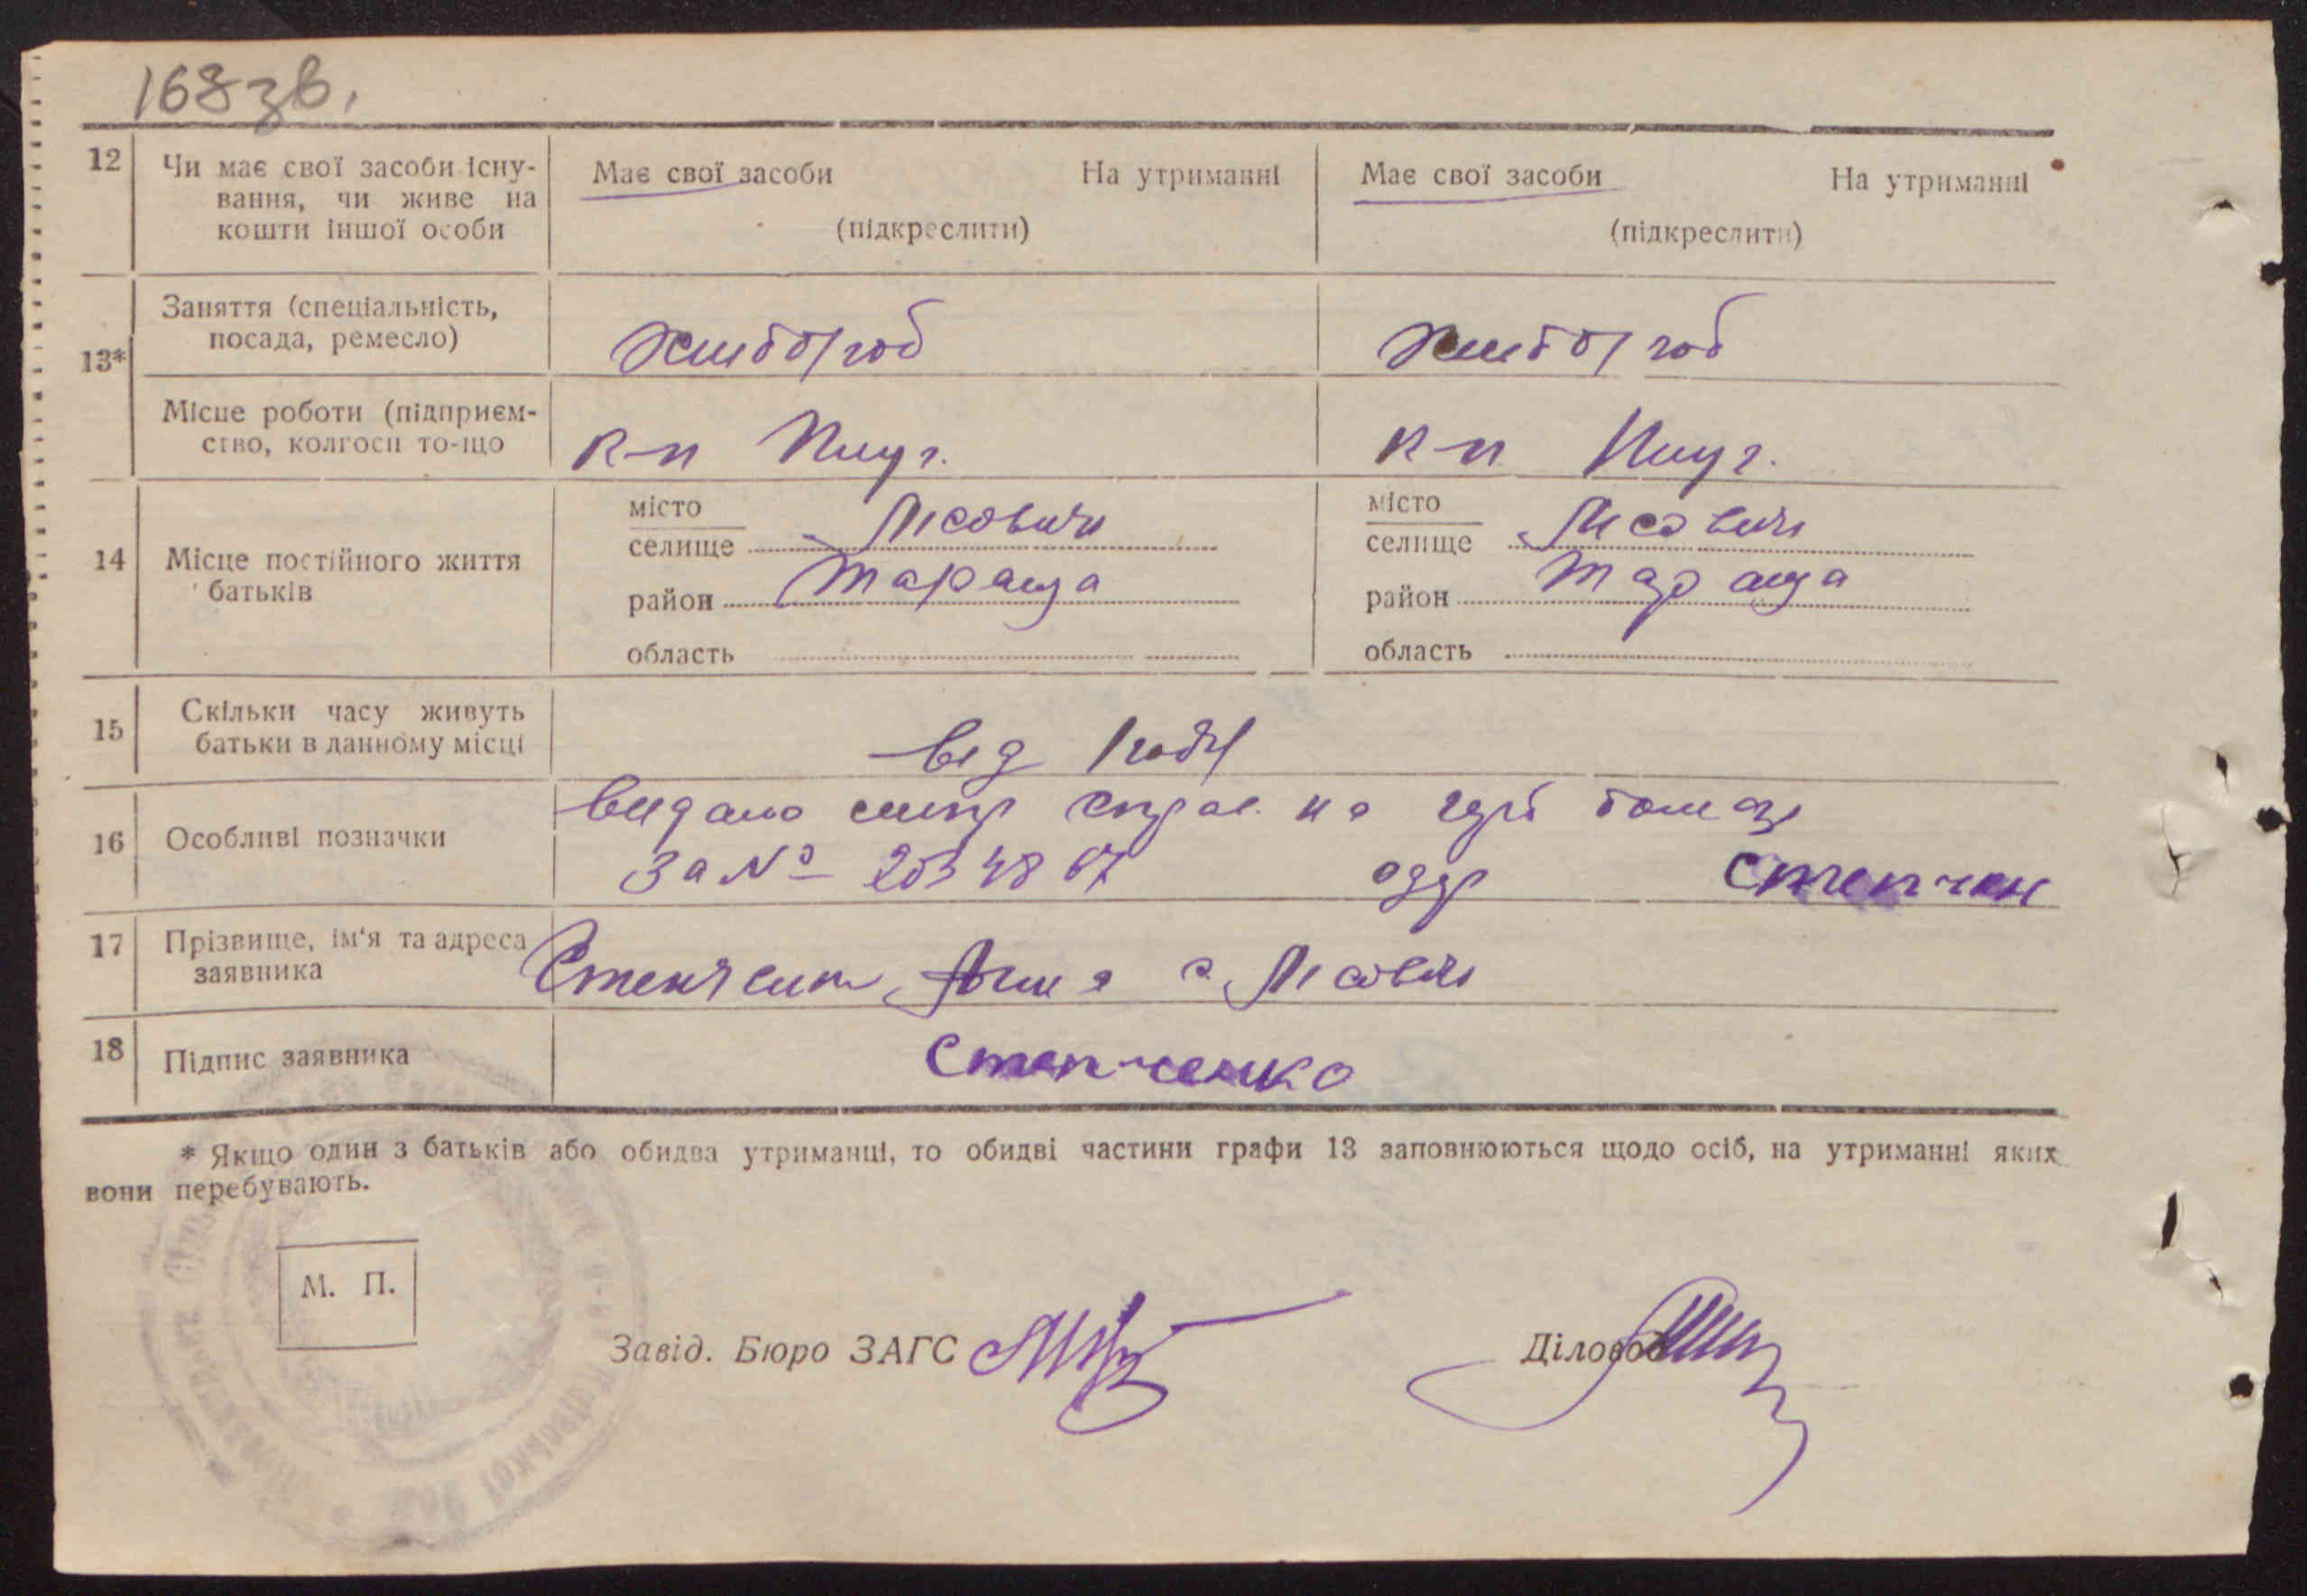 168 зв.
12 Чи має свої засоби існу-
вання, чи живе на
кошти іншої особи
Має свої засоби На утриманні
(підкреслити)
Має свої засоби На утриманні
(підкреслити)
13*
Заняття (спеціальність,
посада, ремесло)
хлібороб
хлібороб
Місце роботи (підприєм-
ство, колгосп то-що
к-п Плуг.
к-п Плуг.
14 Місце постійного життя
батьків
місто
селище Лісовичі
район Тараща
область
місто
селище Лісовичі
район Тараща
область
15 Скільки часу живуть
батьки в данному місці
від
16 Особливі позначки
видано
за №
одер Степчен
17 Прізвище, ім'я та адреса
заявника
с. Лісовичі
18 Підпис заявника
Степченко
* Якщо один з батьків або обидва утриманці, то обидві частини графи 13 заповнюються щодо осіб, на утриманні яких
вони перебувають.
М. П.
Завід. Бюро ЗАГС
Діловод